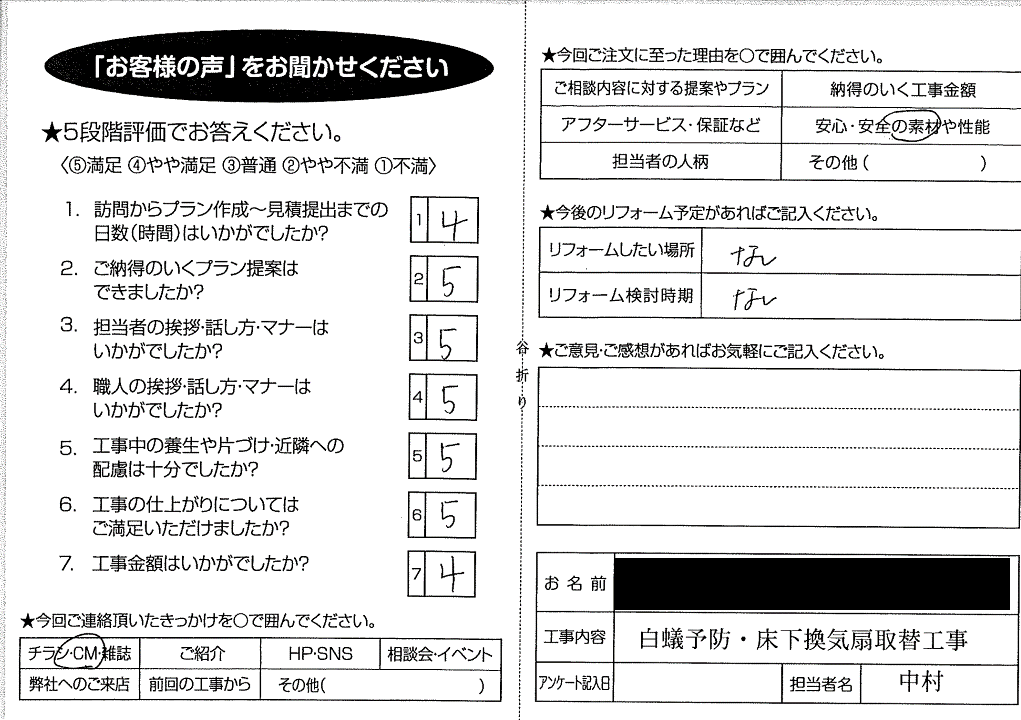 「お客様の声」をお聞かせください
★5段階評価でお答えください。
〈⑤満足 ④やや満足 ③普通 ②やや不満 ①不満〉
1. 訪問からプラン作成～見積提出までの
日数(時間)はいかがでしたか?
1 4
2. ご納得のいくプラン提案は
できましたか?
2 5
3. 担当者の挨拶・話し方・マナーは
いかがでしたか?
3 5
4. 職人の挨拶・話し方・マナーは
いかがでしたか?
4 5
5. 工事中の養生や片づけ・近隣への
配慮は十分でしたか?
5 5
6. 工事の仕上がりについては
ご満足いただけましたか?
6 5
7. 工事金額はいかがでしたか?
7 4
★今回ご連絡頂いたきっかけを○で囲んでください。
チラシ・CM・雑誌 ご紹介 HP・SNS 相談会・イベント
弊社へのご来店 前回の工事から その他( )
谷折り
★今回ご注文に至った理由を○で囲んでください。
ご相談内容に対する提案やプラン 納得のいく工事金額
アフターサービス・保証など 安心・安全の素材や性能
担当者の人柄 その他( )
★今後のリフォーム予定があればご記入ください。
リフォームしたい場所 なし
リフォーム検討時期 なし
★ご意見・ご感想があればお気軽にご記入ください。
お名前
工事内容 白蟻予防・床下換気扇取替工事
アンケート記入日 担当者名 中村